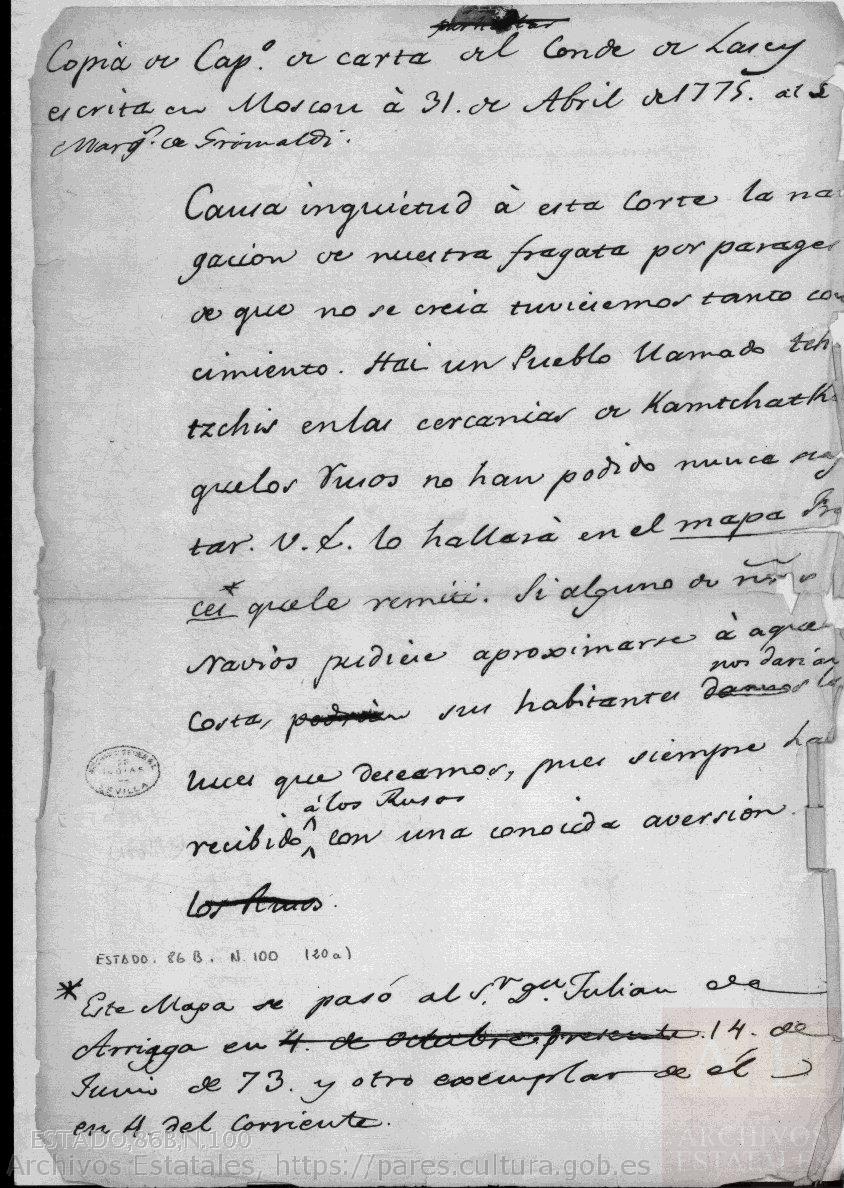 Copia de Cap.º de carta del Conde de Lascy
escrita en Moscou à 31. de Abril de 1775. al S
Marq.s de Grimaldi.
Causa inquietud à esta Corte la na
gacion de nuestra fragata por parages
de que no se creia tuviesemos tanto con
cimiento. Hai un Pueblo llamado tch
tzchis en las cercanias de Kamtchatk
que los Rusos no han podido nunca
tar. V. E. lo hallarà en el mapa
ces* que le remiti. Si alguno de ñros
Navios pudiese aproximarse à aque
nos darian
costa, podrian sus habitantes darnos las
luces que deseamos, pues siempre ha
á los Rusos
recibido con una conocida aversion.
los Rusos.
ARCHIVO GENERAL DE INDIAS SEVILLA
ESTADO. 86 B. N. 100 (20a)
* Este Mapa se pasó al S.r D.n Julian de
Arriaga en 4. de Octubre presente 14. de
Junio de 73. y otro exemplar de él
en 4 del Corriente.
ESTADO,86B,N,100
Archivos Estatales, https://pares.cultura.gob.es
ARCHIVOS
ESTATALES